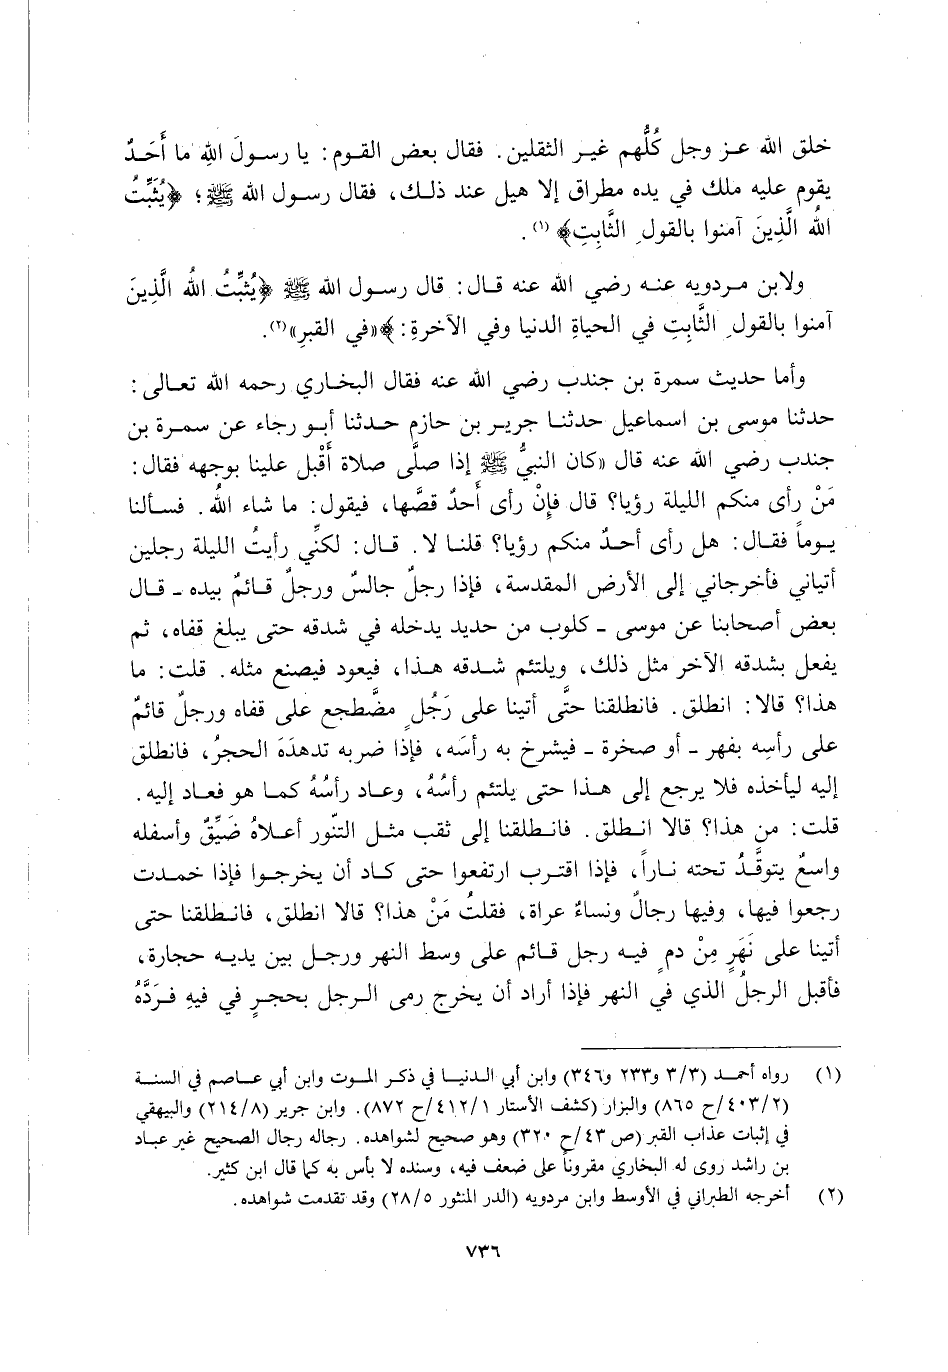 خلق الله عز وجل كُلُّهم غير الثقلين. فقال بعض القوم: يا رسولَ اللهِ ما أَحَدٌ
يقوم عليه ملك في يده مطراق إلا هيل عند ذلك، فقال رسول الله ﷺ؛ ﴿يُثَبِّتُ
اللهُ الَّذِينَ آمنوا بالقولِ الثَّابِتِ﴾ (١).
ولابن مردويه عنه رضي الله عنه قال: قال رسول الله ﷺ ﴿يُثَبِّتُ اللهُ الَّذِينَ
آمنوا بالقولِ الثَّابِتِ في الحياةِ الدنيا وفي الآخرةِ:﴾ «في القبرِ»(٢).
وأما حديث سمرة بن جندب رضي الله عنه فقال البخاري رحمه الله تعالى:
حدثنا موسى بن اسماعيل حدثنا جرير بن حازم حدثنا أبو رجاء عن سمرة بن
جندب رضي الله عنه قال «كان النبيُّ ﷺ إذا صلَّى صلاة أَقْبل علينا بوجهه فقال:
مَنْ رأى منكم الليلة رؤيا؟ قال فإِنْ رأى أَحدٌ قصَّها، فيقول: ما شاء اللهُ. فسألنا
يوماً فقال: هل رأى أحدٌ منكم رؤيا؟ قلنا لا. قال: لكنِّي رأيتُ الليلة رجلين
أتياني فأخرجاني إلى الأرض المقدسة، فإذا رجلٌ جالسٌ ورجلٌ قائمٌ بيده ـ قال
بعض أصحابنا عن موسى ـ كلوب من حديد يدخله في شدقه حتى يبلغ قفاه، ثم
يفعل بشدقه الآخر مثل ذلك، ويلتئم شدقه هذا، فيعود فيصنع مثله. قلت: ما
هذا؟ قالا: انطلق. فانطلقنا حتَّى أتينا على رَجُلٍ مضَّطجع على قفاه ورجلٌ قائمٌ
على رأسِه بفهر ـ أو صخرة ـ فيشرخ به رأسَه، فإذا ضربه تدهدَهَ الحجرُ، فانطلق
إليه ليأخذه فلا يرجع إلى هذا حتى يلتئم رأسُهُ، وعاد رأسُهُ كما هو فعاد إليه.
قلت: من هذا؟ قالا انطلق. فانطلقنا إلى ثقب مثل التّنور أعلاهُ ضَيِّقٌ وأسفله
واسعٌ يتوقَّدُ تحته ناراً، فإذا اقترب ارتفعوا حتى كاد أن يخرجوا فإذا خمدت
رجعوا فيها، وفيها رجالٌ ونساءٌ عراة، فقلتُ مَنْ هذا؟ قالا انطلق، فانطلقنا حتى
أتينا على نَهَرٍ مِنْ دمٍ فيه رجل قائم على وسط النهر ورجل بين يديه حجارة،
فأقبل الرجلُ الذي في النهر فإذا أراد أن يخرج رمى الرجل بحجرٍ في فيهِ فرَدَّهُ
(١) رواه أحمد (٣/٣ و٢٣٣ و٣٤٦) وابن أبي الدنيا في ذكر الموت وابن أبي عاصم في السنة
(٤٠٣/٢/ح ٨٦٥) والبزار (كشف الأستار ٤١٢/١/ح ٨٧٢). وابن جرير (٢١٤/٨) والبيهقي
في إثبات عذاب القبر (ص ٤٣/ح ٣٢٠) وهو صحيح لشواهده. رجاله رجال الصحيح غير عباد
بن راشد روى له البخاري مقروناً على ضعف فيه، وسنده لا بأس به كما قال ابن كثير.
(٢) أخرجه الطبراني في الأوسط وابن مردويه (الدر المنثور ٢٨/٥) وقد تقدمت شواهده.
٧٣٦